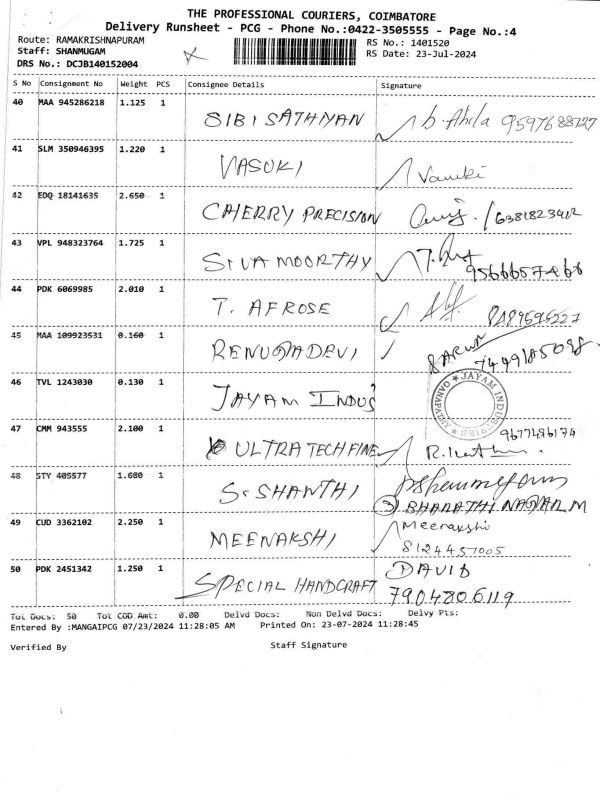 THE PROFESSIONAL COURIERS, COIMBATORE
Delivery Runsheet - PCG - Phone No.:0422-3505555 - Page No.:4
Route: RAMAKRISHNAPURAM RS No.: 1401520
Staff: SHANMUGAM RS Date: 23-Jul-2024
DRS No.: DCJB140152004
S No Consignment No Weight PCS Consignee Details Signature
40 MAA 945286218 1.125 1 SIBI SATHIYAN b. Abila
41 SLM 350946395 1.220 1 VASUKI Vasuki
42 EDQ 18141635 2.650 1 CHERRY PRECISION 6381823412
43 VPL 948323764 1.725 1 SIVA MOORTHY
44 PDK 6069985 2.010 1 T. AFROSE
45 MAA 109923531 0.160 1 RENUGADEVI SARUN
46 TVL 1243030 0.130 1 JAYAM INDUS JAYAM INDUSTRIES
47 CMM 943555 2.100 1 ULTRA TECH FINE 9677486174
48 STY 405577 1.680 1 S. SHANTHI BHARATHI NAGAR M
49 CUD 3362102 2.250 1 MEENAKSHI Meenakshi
8124457005
50 PDK 2451342 1.250 1 SPECIAL HANDCRAFT DAVID
7904806119
Tot Docs: 50 Tot COD Amt: 0.00 Delvd Docs: Non Delvd Docs: Delvy Pts:
Entered By :MANGAIPCG 07/23/2024 11:28:05 AM Printed On: 23-07-2024 11:28:45
Verified By Staff Signature